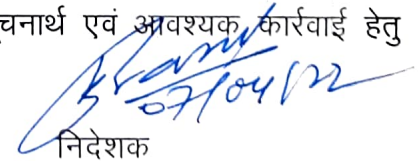 चनार्थ एवं आवश्यक कार्रवाई हेतु
07/04/22
निदेशक